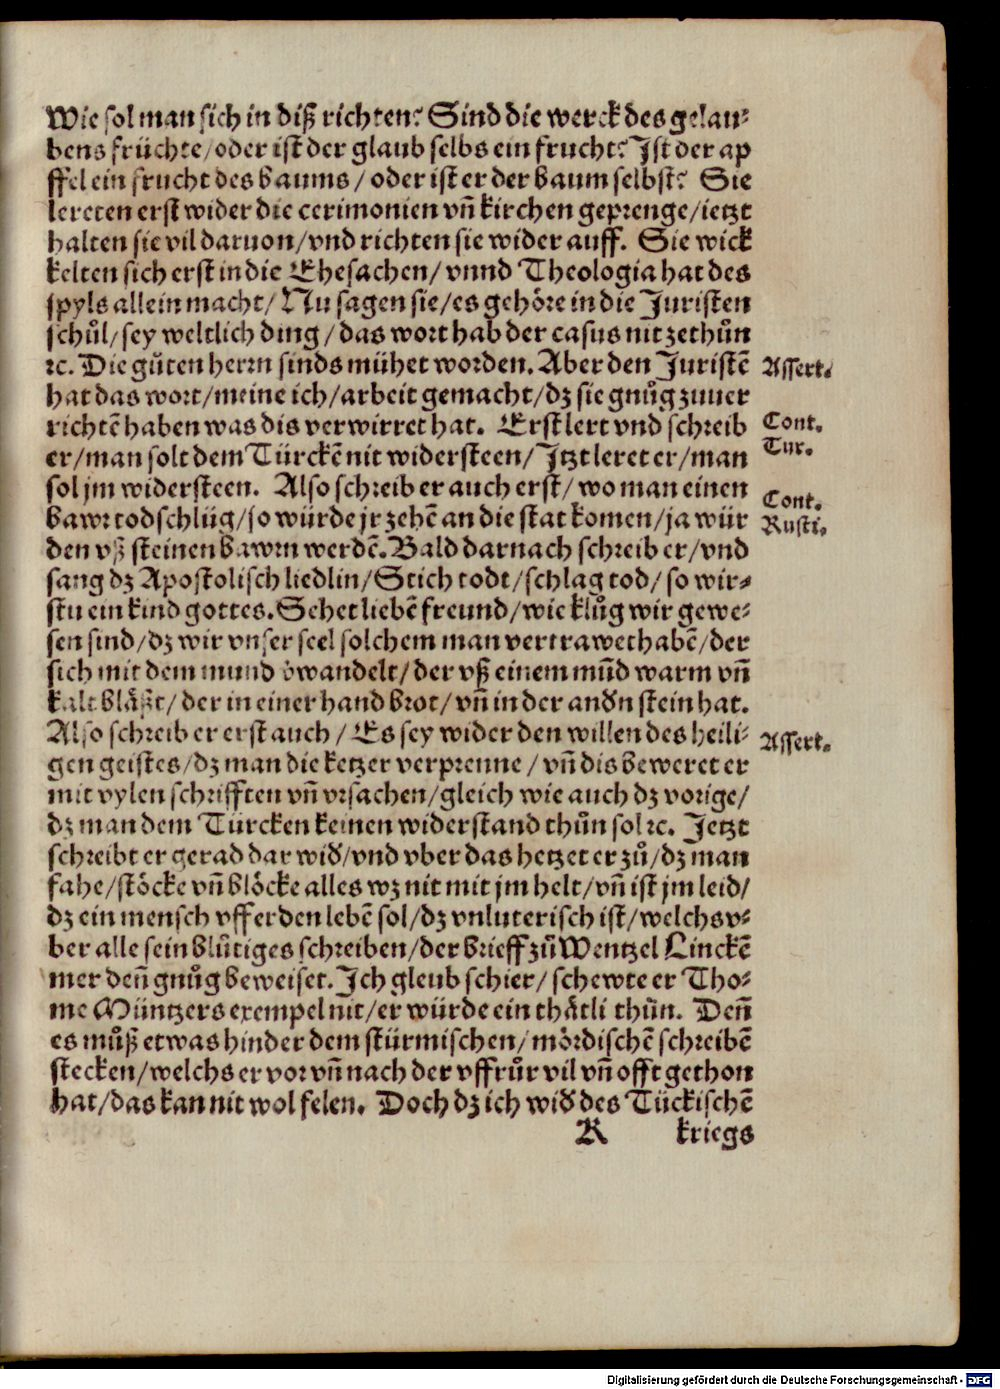 Wie sol man sich in diß richten? Sind die werck des gelau-
bens früchte/oder ist der glaub selbs ein frucht? Ist der ap
ffel ein frucht des baums/ oder ist er der baum selbst? Sie
lereten erst wider die cerimonien vñ kirchen geprenge/ietzt
halten sie vil daruon/vnd richten sie wider auff. Sie wick
kelten sich erst in die Ehesachen/ vnnd Theologia hat des
spyls allein macht/ Nu sagen sie/es gehöre in die Juristen
schůl/sey weltlich ding/das wort hab der casus nit zethůn
ꝛc. Die gůten herrn sinds mühet worden. Aber den Juristē Assert.
hat das wort/meine ich/arbeit gemacht/dz sie gnůg zuuer
richtē haben was dis verwirret hat. Erst lert vnd schreib Cont.
Tur.
er/man solt dem Türckē nit widersteen/Jtzt leret er/man
sol jm widersteen. Also schreib er auch erst/ wo man einen Cont.
bawr todschlüg/so würde jr zehē an die stat komen/ja wür Rusti.
den vß steinen bawrn werdē. Bald darnach schreib er/vnd
sang dz Apostolisch liedlin/Stich todt/schlag tod/so wir-
stu ein kind gottes. Sehet liebē freund/wie klůg wir gewe-
sen sind/dz wir vnser seel solchem man vertrawet habē/der
sich mit dem mund v̊wandelt/der vß einem mūd warm vñ
kalt bläßt/der in einer hand brot/vñ in der andn stein hat.
Also schreib er erst auch/ Es sey wider den willen des heili- Assert.
gen geistes/dz man die ketzer verprenne/vñ dis beweret er
mit vylen schrifften vñ vrsachen/gleich wie auch dz vorige/
dz man dem Türcken keinen widerstand thůn sol ꝛc. Jetzt
schreibt er gerad dar wid/vnd vber das hetzet er zů/dz man
fahe/stöcke vñ blöcke alles wz nit mit jm helt/vñ ist jm leid/
dz ein mensch vff erden lebē sol/dz vnluterisch ist/welchs v-
ber alle sein blůtiges schreiben/der brieff zů Wentzel Linckē
mer deñ gnůg beweiset. Ich gleub schier/schewte er Tho-
me Müntzers exempel nit/er würde ein thätli thůn. Deñ
es můß etwas hinder dem stürmischen/mördischē schreibē
stecken/welchs er vor vñ nach der vffrůr vil vñ offt gethon
hat/das kan nit wol felen. Doch dz ich wid des Tückischē
K kriegs
Digitalisierung gefördert durch die Deutsche Forschungsgemeinschaft - DFG